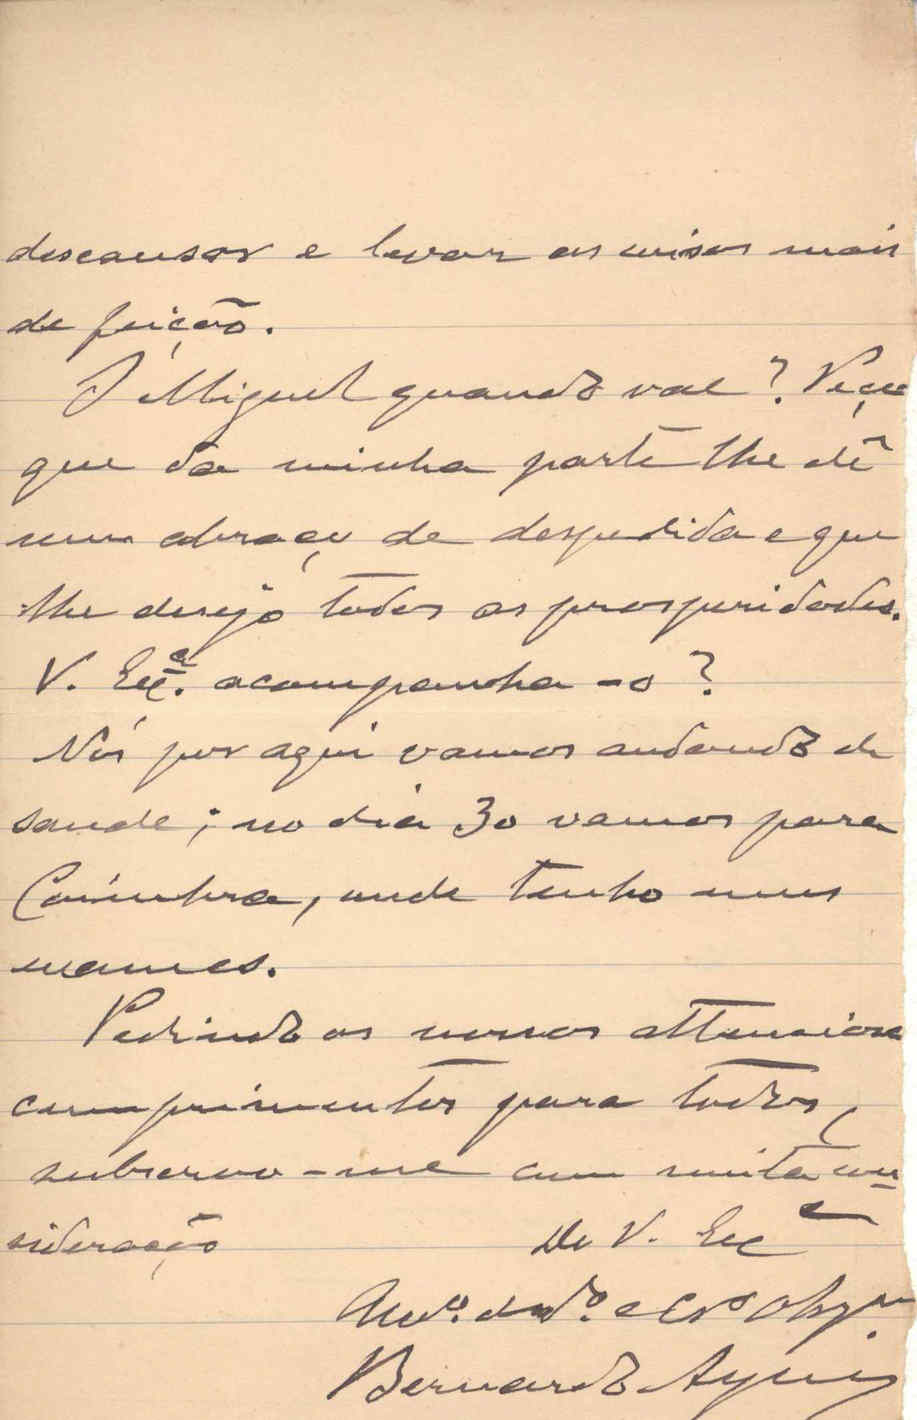 descansar e levar as coisas mais
de feição.
O Miguel quando vae? Peço
que da minha parte lhe dê
um abraço de despedida e que
lhe desejo todas as prosperidades.
V. Ex.ª acompanha-o?
Nós por aqui vamos andando de
saude; no dia 30 vamos para
Coimbra, onde tenho uns
exames.
Pedindo os nossos attenciosos
cumprimentos para todos,
subscrevo-me com muita con
sideração
De V. Exª
Amº. e Crº Obgº.
Bernardo Ayres